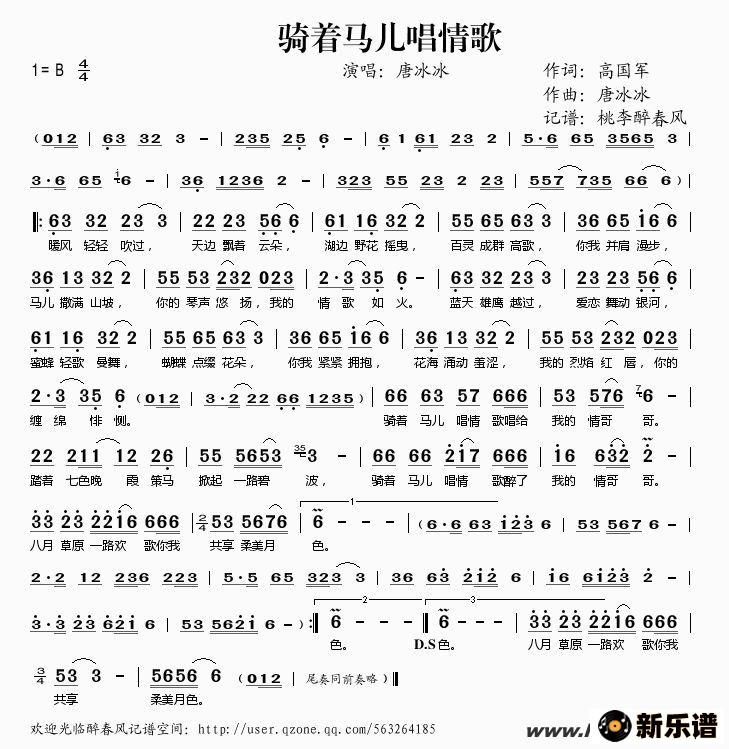 骑着马儿唱情歌
1= B 4/4 演唱：唐冰冰 作词：高国军
作曲：唐冰冰
记谱：桃李醉春风
( 0 1 2 | 6 3 3 2 3 - | 2 3 5 2 5 6 - | 6 1 6 1 2 3 2 - | 5 · 6 6 5 3 5 6 5 3 |
3 · 6 6 5 1 6 - | 3 6 1 2 3 6 2 - | 3 2 3 5 2 3 2 2 3 | 5 5 7 7 3 5 6 6 6 ) |
6 3 3 2 2 3 3 | 2 2 2 3 5 6 6 | 6 1 1 6 3 2 2 | 5 5 6 5 6 3 3 | 3 6 6 5 1 6 6 |
暖风 轻轻 吹过， 天边 飘着 云朵， 湖边 野花 摇曳， 百灵 成群 高歌， 你我 并肩 漫步，
3 6 1 3 3 2 2 | 5 5 5 3 2 3 2 0 2 3 | 2 · 3 3 5 6 · | 2 2 2 3 5 6 6 | 5 5 5 3 2 3 5 6 6 |
马儿 撒满 山坡， 你的 琴声 悠 扬，我的 情 歌 如 火。 蓝天 雄鹰 越过， 爱恋 舞动 银河，
6 1 1 6 3 2 2 | 5 5 6 5 6 3 3 | 3 6 6 5 1 6 6 | 3 6 1 3 3 2 2 | 5 5 5 3 2 3 2 0 2 3 |
蜜蜂 轻歌 曼舞， 蝴蝶 点缀 花朵， 你我 紧紧 拥抱， 花海 涌动 羞涩， 我的 烈焰 红 唇，你的
2 · 3 3 5 6 | ( 0 1 2 | 3 · 2 2 2 6 6 1 2 3 5 ) | 6 6 6 3 5 7 6 6 6 | 5 3 5 7 6 7 6 - |
缠 绵 悱 恻。 骑着 马儿 唱情 歌唱给 我的 情哥 哥。
2 2 2 1 1 1 2 1 6 | 5 5 5 6 5 3 35 3 - | 6 6 6 6 2 1 7 6 6 6 | 1 6 6 3 2 2 - |
踏着 七色晚 霞 策马 掀起 一路碧 波， 骑着 马儿 唱情 歌醉了 我的 情哥 哥。
3 3 2 3 2 2 1 6 6 6 6 | 2/4 5 3 5 6 7 6 | 1 6 - - - | ( 6 · 6 6 3 1 2 3 6 | 5 3 5 6 7 6 - |
八月 草原 一路欢 歌你我 共享 柔美月 色。
2 · 2 1 2 2 3 6 2 2 3 | 5 · 5 6 5 3 2 3 3 | 3 6 6 3 2 1 2 6 | 1 6 6 1 2 3 2 - |
3 · 3 2 3 6 2 1 6 | 5 3 5 6 2 1 6 - ) :| 2 6 - - - :| 3 6 - - - | 3 3 2 3 2 2 1 6 6 6 6 |
色。 D.S 色。 八月 草原 一路欢 歌你我
3/4 5 3 3 - | 5 6 5 6 6 - | ( 0 1 2 | 尾奏同前奏略 ) ‖
共享 柔美月色。
欢迎光临醉春风记谱空间：http://user.qzone.qq.com/563264185
www. 新乐谱